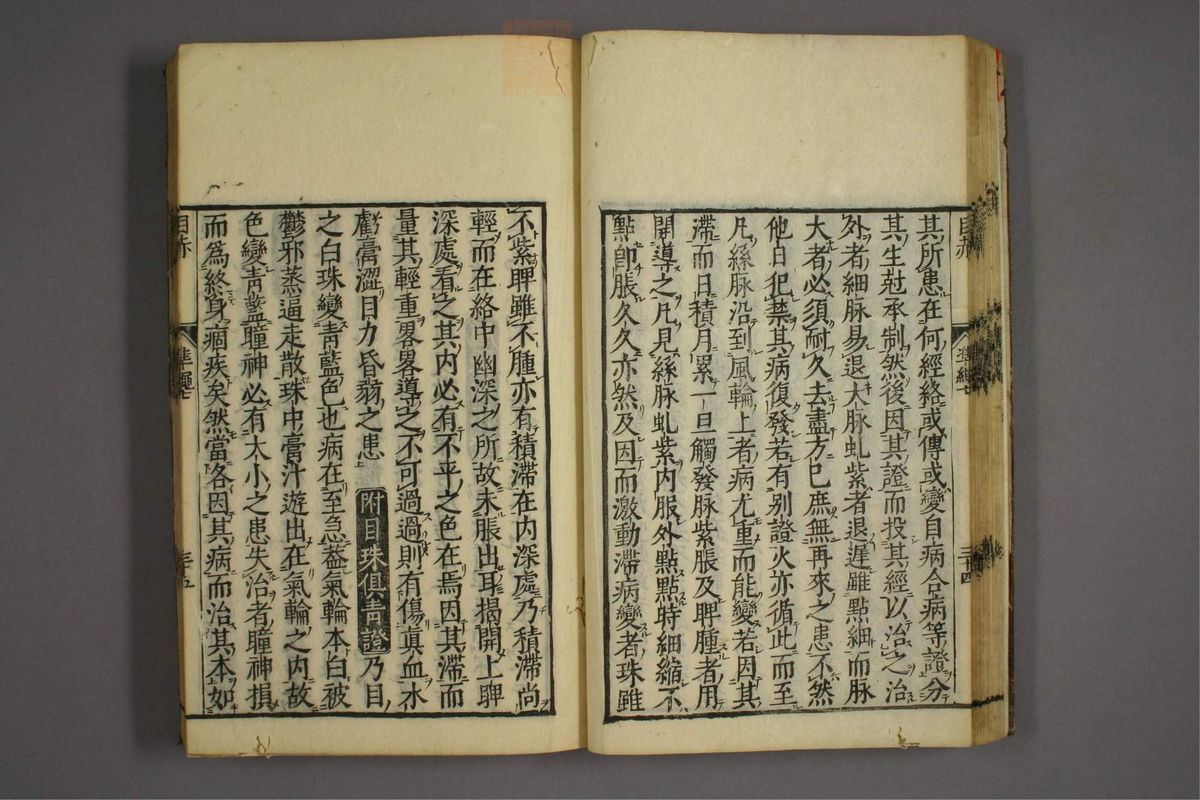 其所患在何經絡或傳或變自病合病等證分
其生尅承制然後因其證而投其經以治之治
外者細脉易退大脉虬紫者退遲雖點細而脉
大者必須耐久去盡方已庶無再來之患不然
他日犯禁其病復發若有别證火亦循此而至
凡絲脉沿到風輪上者病尤重而能變若因其
滯而日積月累一旦觸發脉紫脹及睥腫者用
開導之凡見絲脉虬紫内服外點點時細縮不
點卽脹久久亦然及因而激動滯病變者珠雖
不紫睥雖不腫亦有積滯在内深處乃積滯尚
輕而在絡中幽深之所故未脹出耳揭開上睥
深處看之其内必有不平之色在焉因其滯而
量其輕重畧畧導之不可過過則有傷眞血水
虧膏澀目力昏弱之患 附目珠俱青證 乃目
之白珠變青藍色也病在至急葢氣輪本白被
鬱邪蒸逼走散珠中膏汁遊出在氣輪之内故
色變青藍瞳神必有大小之患失治者瞳神損
而爲終身痼疾矣然當各因其病而治其本如
目赤
準繩七
三十五
目赤
三十四